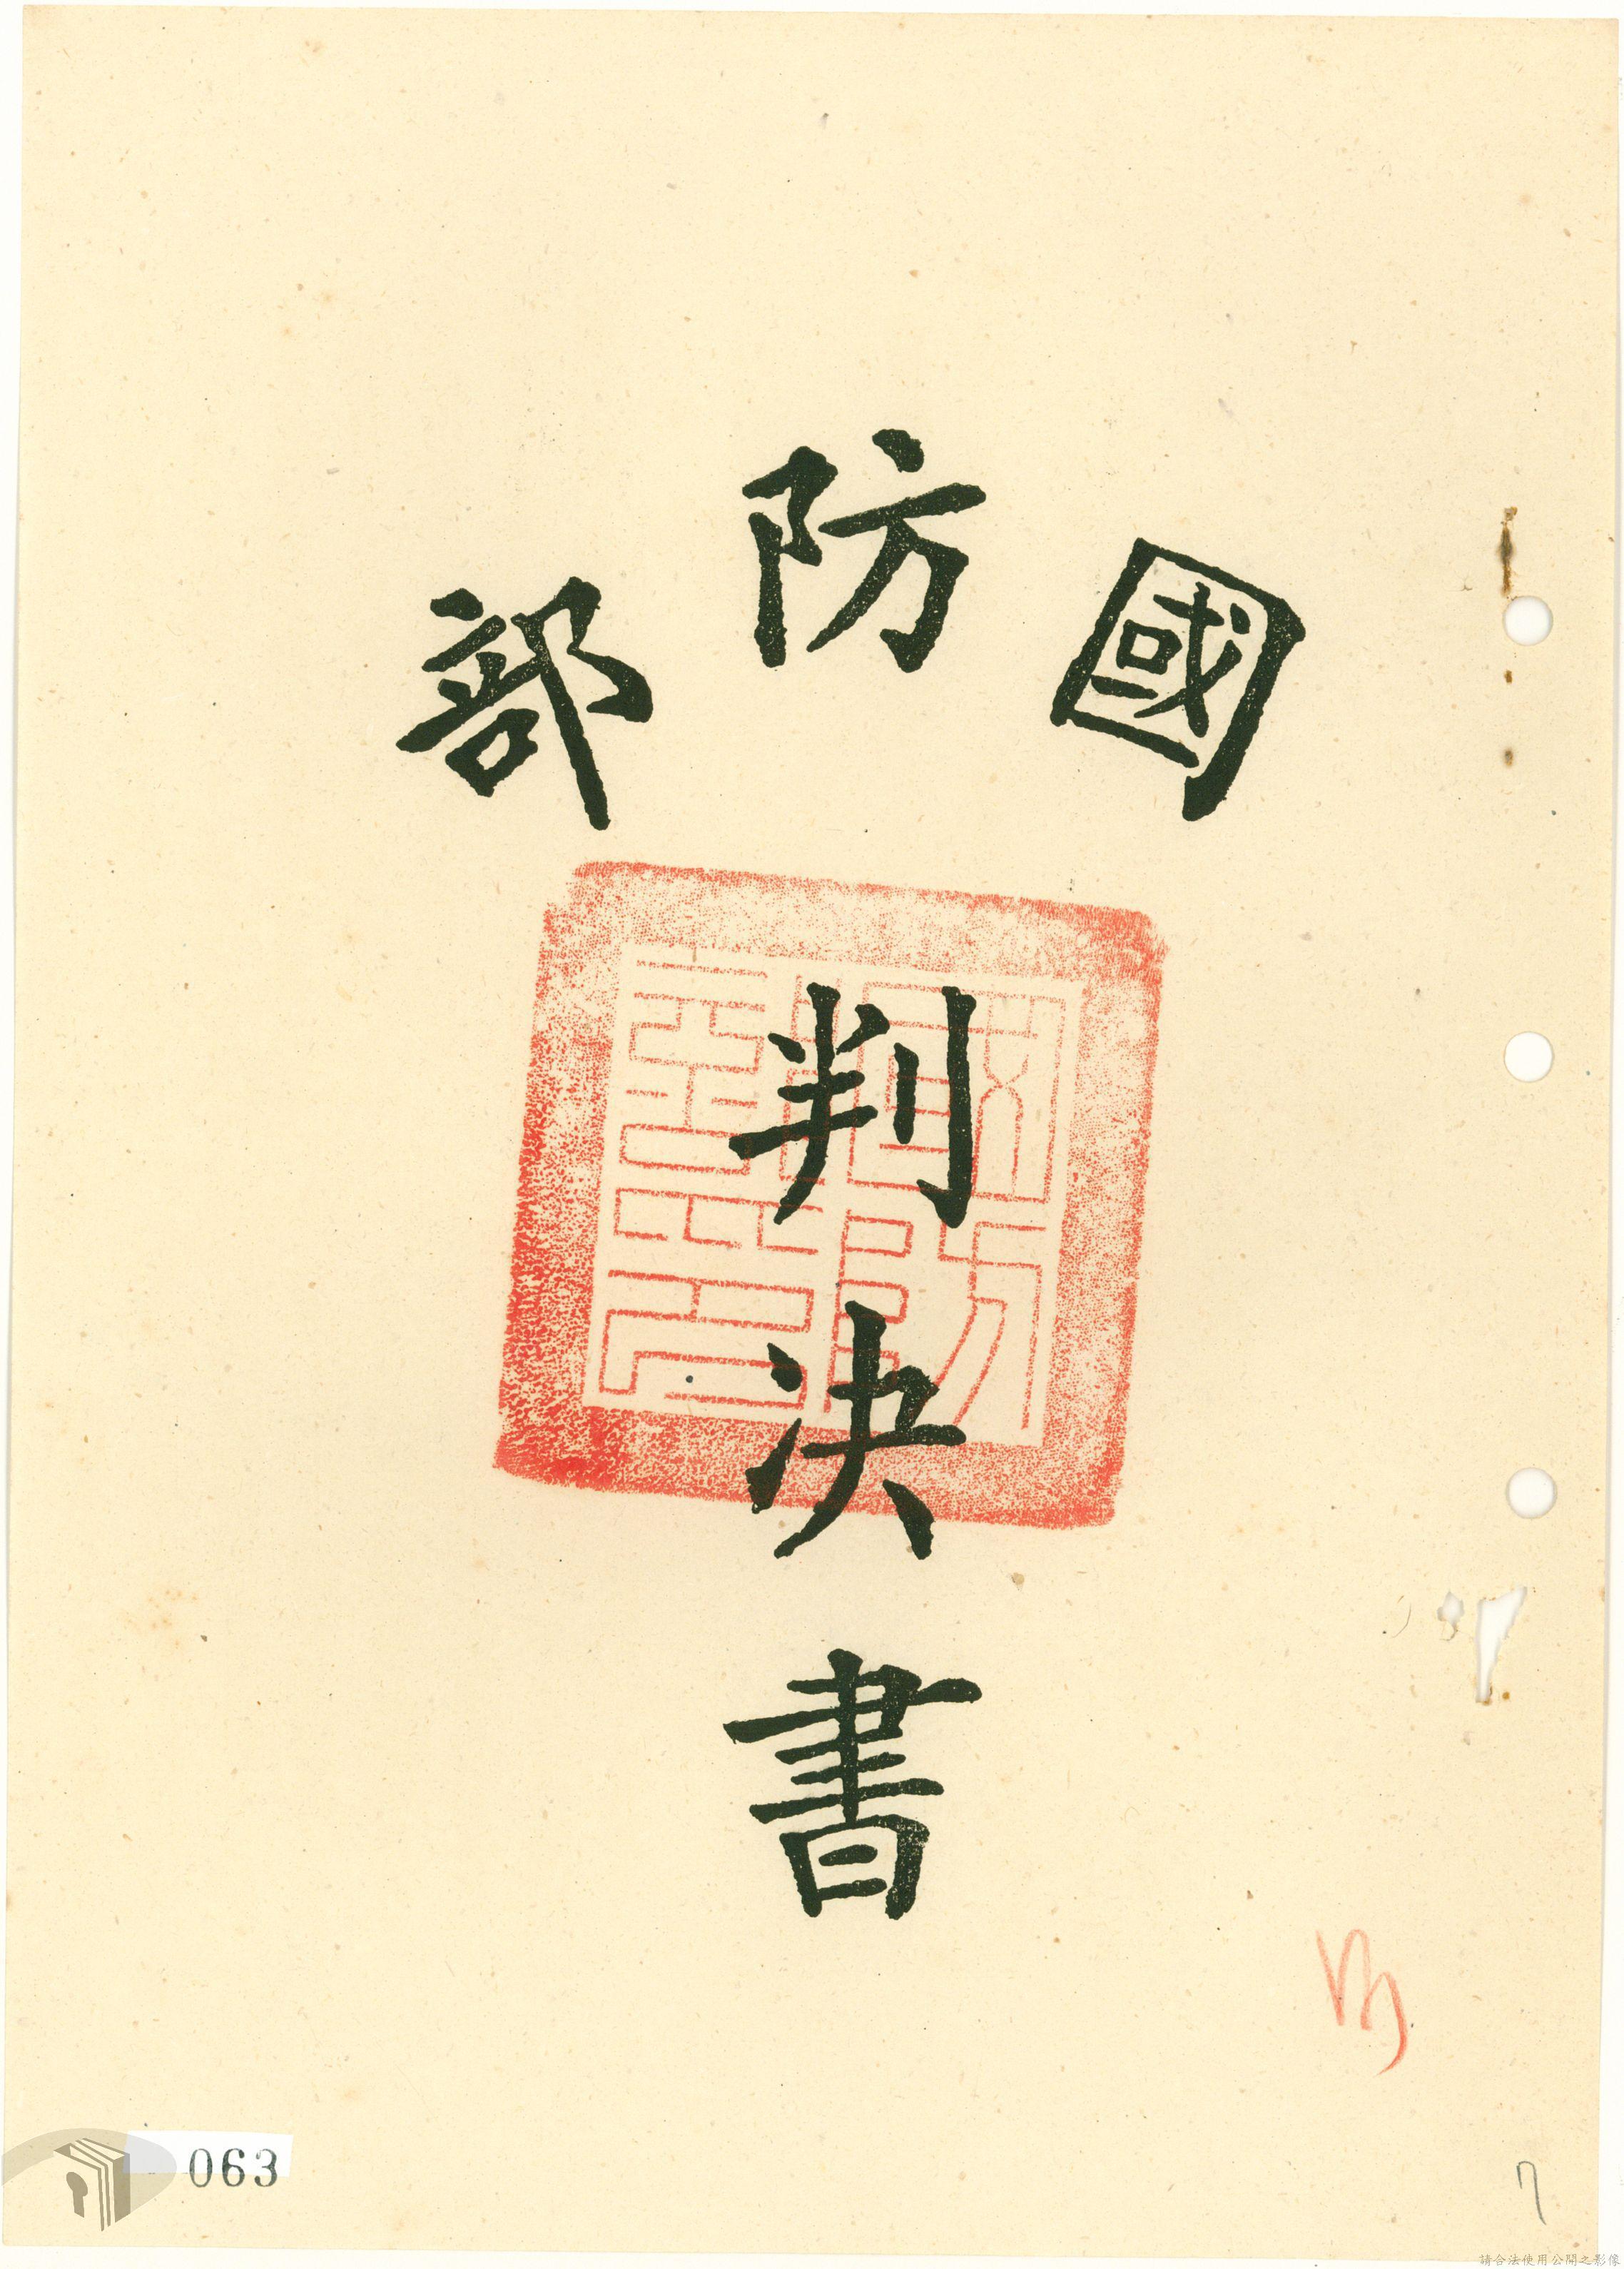 國防部
判決書
063
7
請合法使用公開之影像